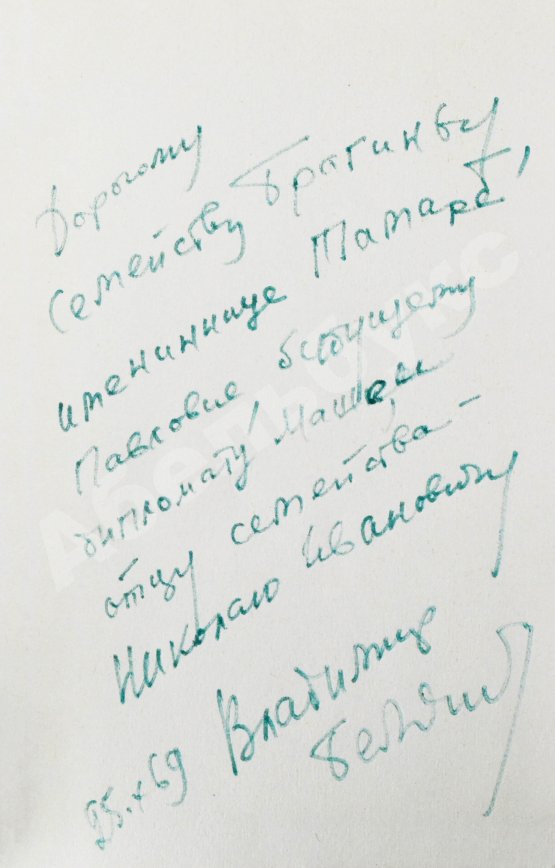 Дорогому
семейству Брагиных,
имениннице Тамаре
Павловне, будущему
дипломату Машеньке
отцу семейства –
Николаю Ивановичу
Владимир
25.X 69
АбельБукс